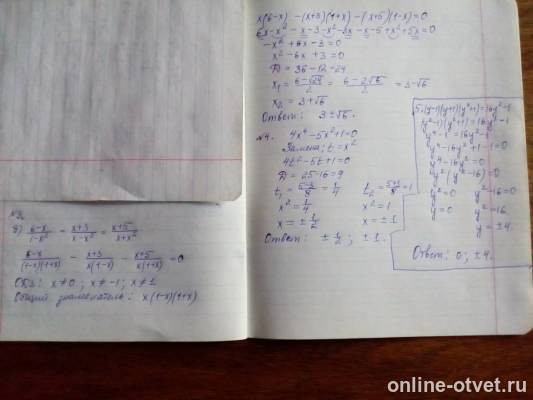 №3.
б) (6-x)/(1-x²) - (x+3)/(x-x²) = (x+5)/(x+x²)
(6-x)/((1-x)(1+x)) - (x+3)/(x(1-x)) - (x+5)/(x(1+x)) = 0
ОДЗ: x≠0; x≠-1; x≠1
Общий знаменатель: x(1-x)(1+x)
x(6-x) - (x+3)(1+x) - (x+5)(1-x) = 0
6x-x²-x-3-x²-3x-x-5+x²+5x=0
-x²+6x-3=0
x²-6x+3=0
D = 36-12=24
x₁ = (6-√24)/2 = (6-2√6)/2 = 3-√6
x₂ = 3+√6
Ответ: 3±√6.
№4. 4x⁴-5x²+1=0
Замена; t = x²
4t²-5t+1=0
D = 25-16=9
t₁ = (5-3)/8 = 1/4 t₂ = =1
x² = 1/4 x²=1
x = ± 1/2 x = ±1
Ответ: ± 1/2; ±1.
5. (y-1)(y+1)(y²+1)=16y²-1
(y²-1)(y²+1)=16y²-1
y⁴-1=16y²-1
y⁴-16y²+1-1=0
y⁴-16y²=0
y²(y²-16)=0
y²=0 y²-16=0
y=0 y²=16
y=±4.
Ответ: 0; ±4.
online-otvet.ru